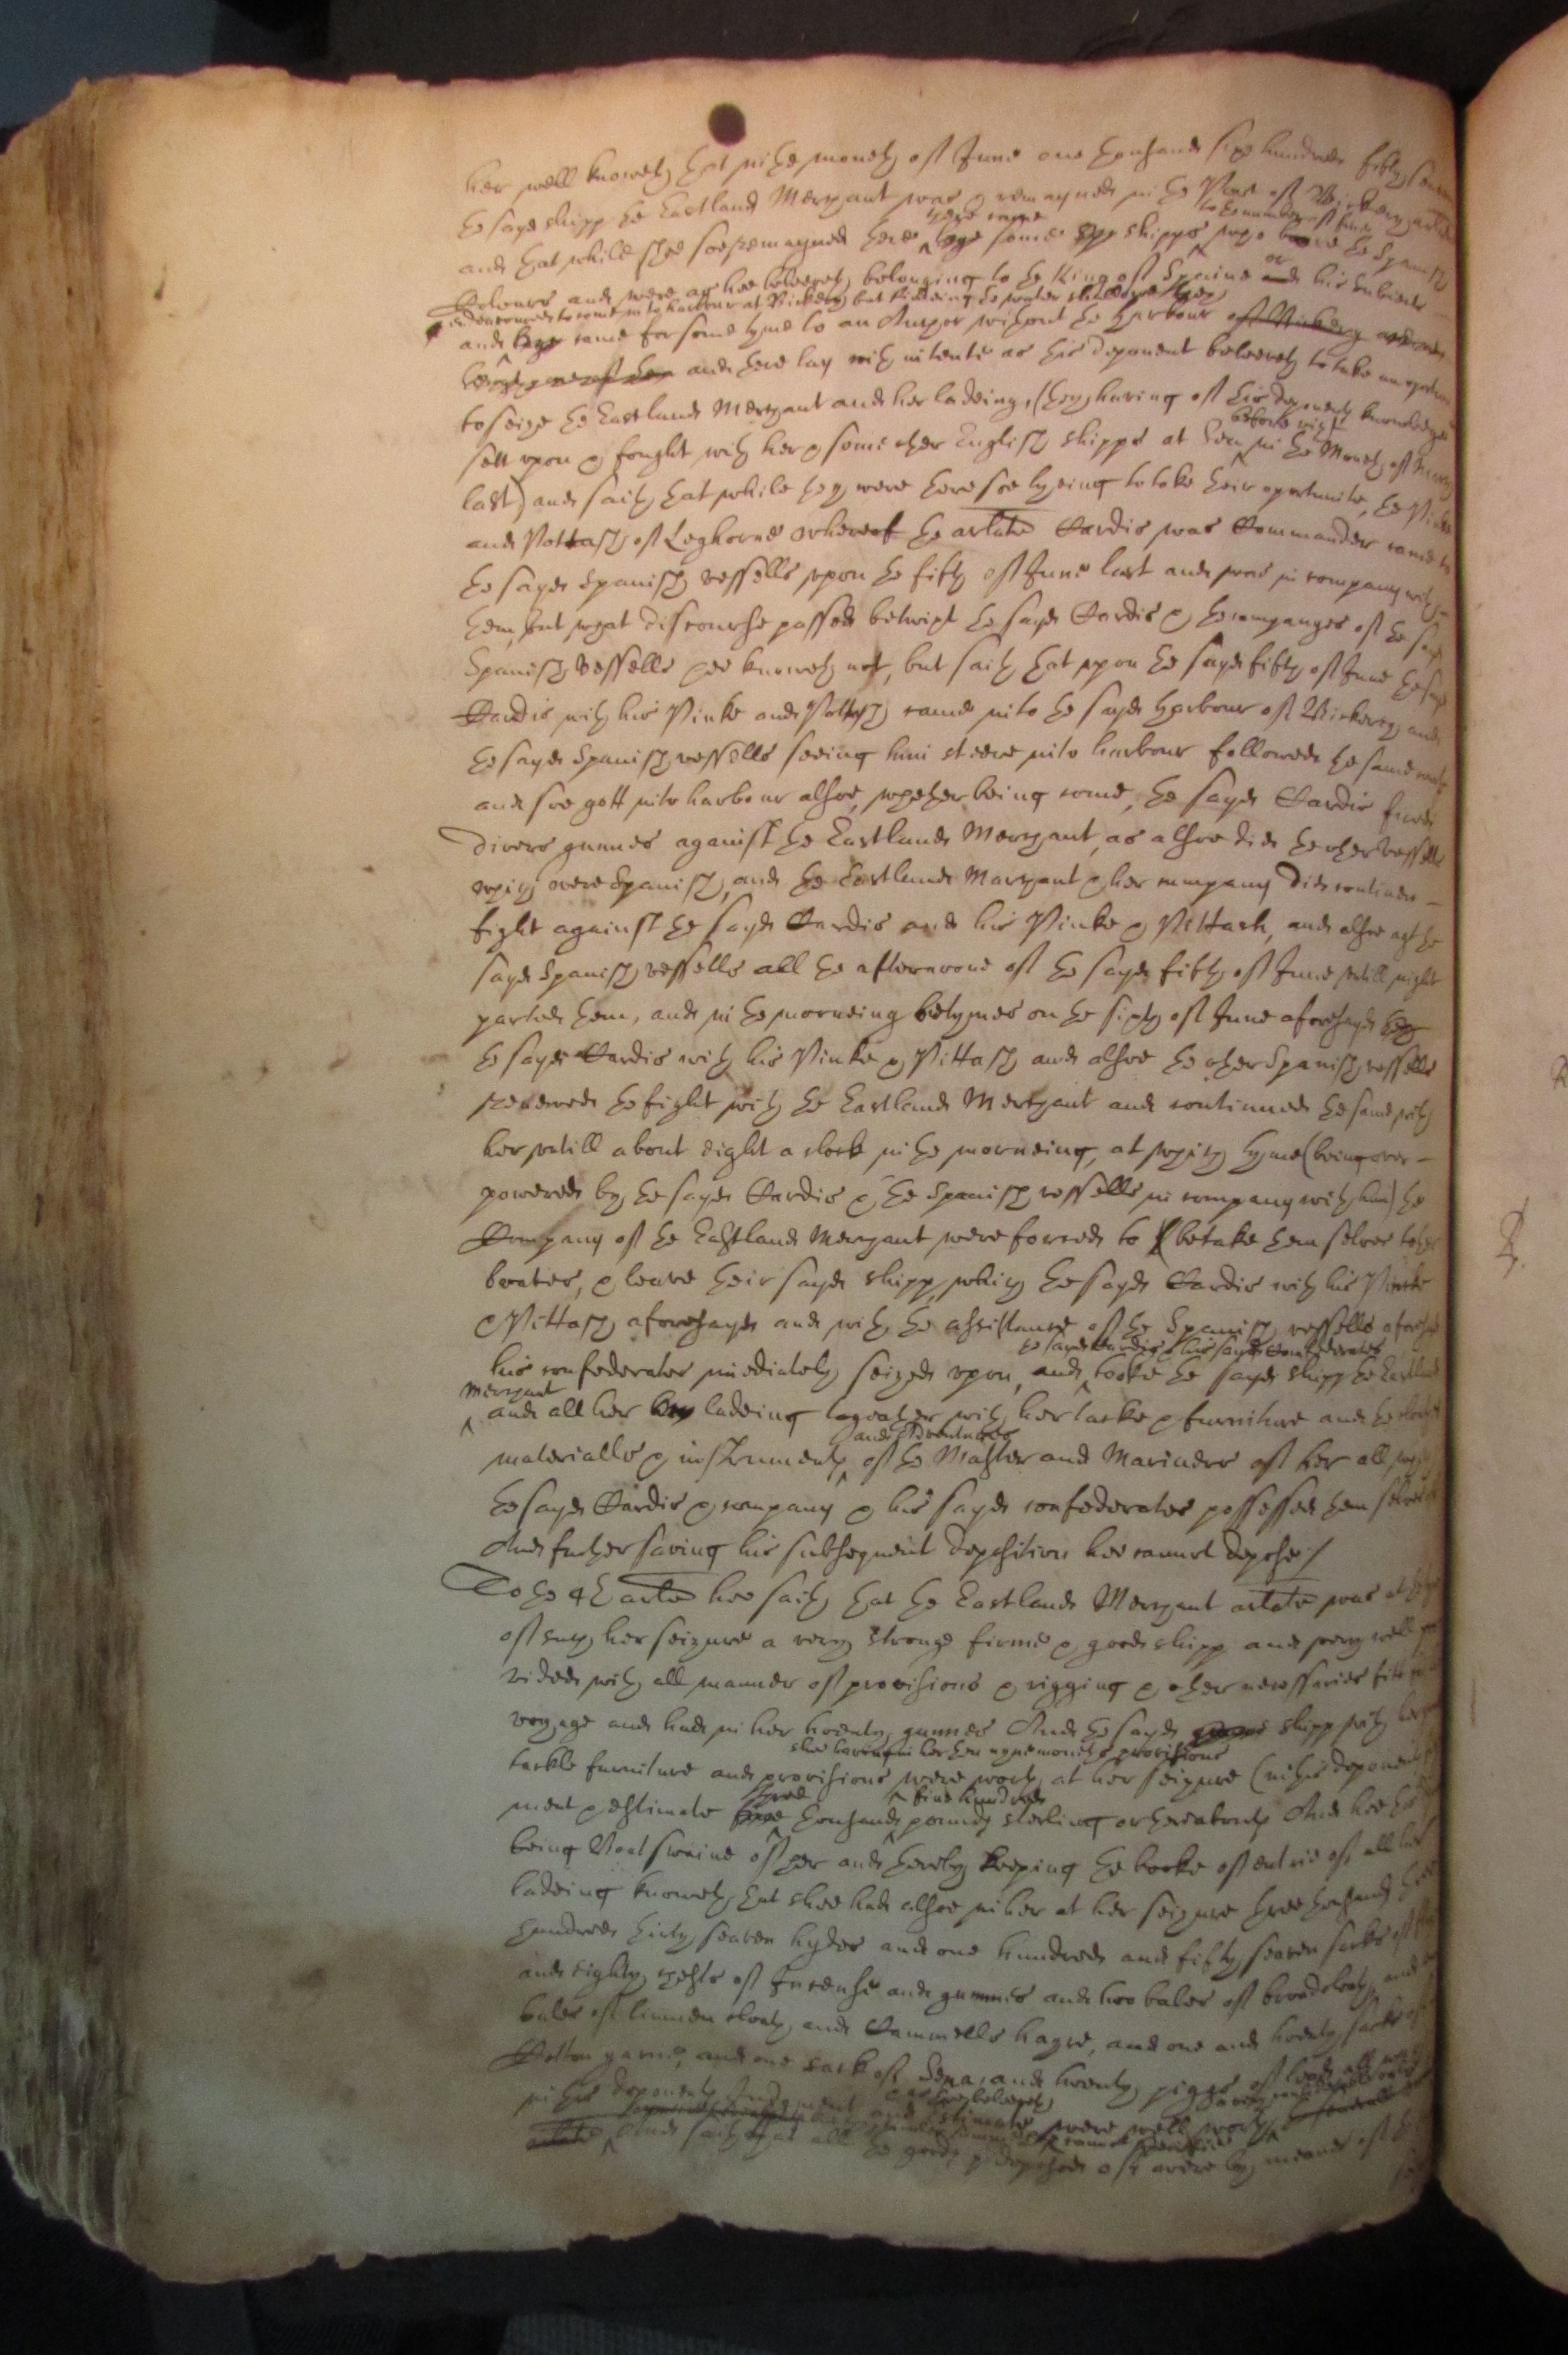 her well knoweth that in the moneth of June one thousand six hundred fifty seaven
the sayd shipp the Eastland Merchant was & remayned in the Port of Bickery arlate
and that while shee soe remayned there there came some shipps to the number of who bore the Spanish
Colours and were as hee beleeveth belonging to the King of Spaine or his subiects
indeavoured to come into harbour at Bickery but finding the water
and came for some tyme to an Anchor without the harbour of Bickery
and there lay with intente as this deponent beleeveth to take an oportunitie
to seize the Eastland Merchant and her ladeing, (they having of this deponents knowledge
sett upon & fought with her & some other English shipps at before in the Moneth of
last) and saith that while they were there soe lyeing to take their oportunite, the Pinke
and Pottach of Leghorne whereof the arlate Cardis was Commander came to
the sayd Spanish vessells upon the fifth of June last and was in company with
them, but what discourse passed betwixt the sayd Cardis & the companyes of the sayd
Spanish vessells hee knoweth not, but saith that upon the sayd fifth of June the sayd
Cardis with his Pinke and Pottach came into the sayd harbour of Bickery, and
the sayd Spanish vessells seeing him steere into harbour followed the same
and soe gott into harbour alsoe, whether being come, the sayd Cardis fired
divers gunnes against the Eastland Merchant, as alsoe did the other vessells
which were Spanish, and the Eastland Marchant & her company did continue
fight against the sayd Cardis and his Pinke & Pittach, and alsoe agt the
sayd Spanish vessells all the afternoone of the sayd fifth of June untill night
parted them, and in the morneing betymes on the sixth of June aforesayd
the sayd Cardis with his Pinke & Pittach and alsoe the other Spanish vessells
renewed the fight with the Eastland Merchant and continued the same with
her untill about eight a clock in the morneing, at which tyme (being over-
powered by the sayd Cardis & the Spanish vessells in company with him) the
Company of the Eastland Merchant were forced to betake them selves to their
boates, & leave their sayd shipp, which the sayd Cardis with his Pinke
& Pittach aforesayd and with the assistance of the Spanish vessells aforesayd
the sayd Cardis & his sayd Confederates
his confederates imediately seized upon, and tooke the sayd shipp the Eastland
Merchant
and all her ladeing togeather with her tackle & furniture and the cloathes
and Adventures
materialls & instruments of the Master and Mariners of her all which
the sayd Cardis & company & his sayd confederates possessed them selves of
And further saving his subsequent deposition hee cannot depose/
To the 4th arlate hee saith that the Eastland Merchant arlate was at the tyme
of such her seizure a very stronge firme & good shipp and very well pro
vided with all manner of provisions & rigging & other necessaries fitt for
voyage and had in her twenty gunnes And the sayd shipp with her
shee having in her then nyne moneths provisions
tackle furniture and provisions were worth at her seizure (in this deponents
three five hundred
ment & estimate thousand pounds sterling or thereabouts And hee
being Boatswaine of her and thereby keeping the booke of entrie of all her
ladeing knoweth that shee had alsoe in her at her seizure three thousand
hundred thirty seaven hydes and one hundred and fifty seaven sacks of
and eighty chests of Incense and gummes and two bales of broadcloath, and
bales of linnen cloath, and Cammells hayre, and one and twenty sacks of
Cotton yarne, and one sack of Sena, and twenty piggs of lead all
in this deponents Judgment hee beleeveth were well worth
And saith that all the goods deposed of were by meanes of